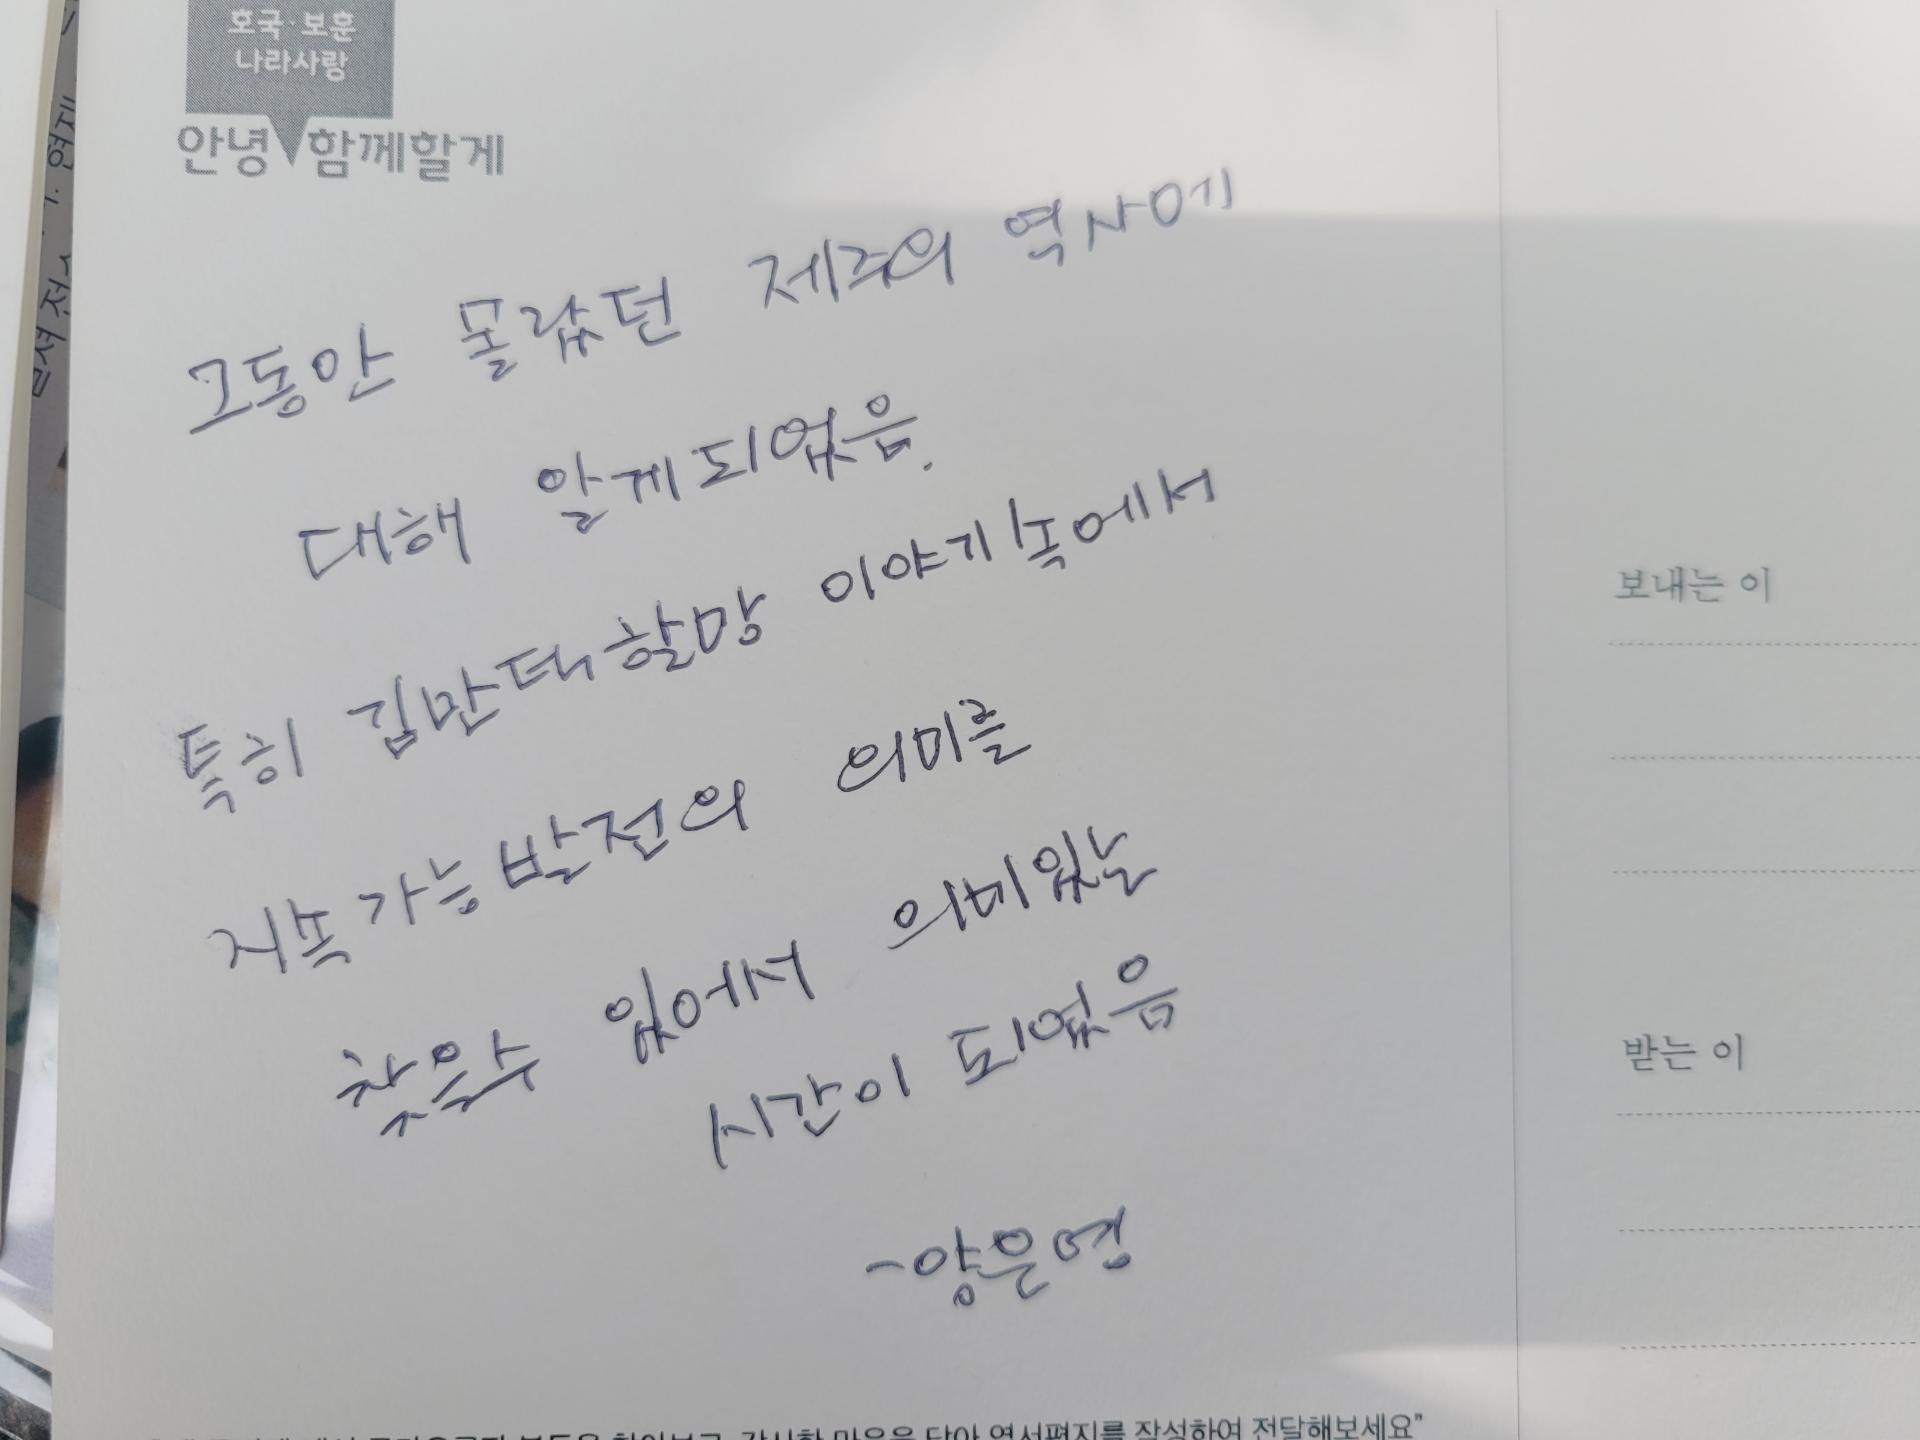 호국·보훈
나라사랑
안녕 함께할게
그동안 몰랐던 제주의 역사에
대해 알게되었음.
특히 김만덕할망 이야기속에서
지속가능발전의 의미를
찾을수 있어서 의미있는
시간이 되었음
-양은영
보내는 이
받는 이
마음을 담아 엽서편지를 작성하여 전달해보세요"